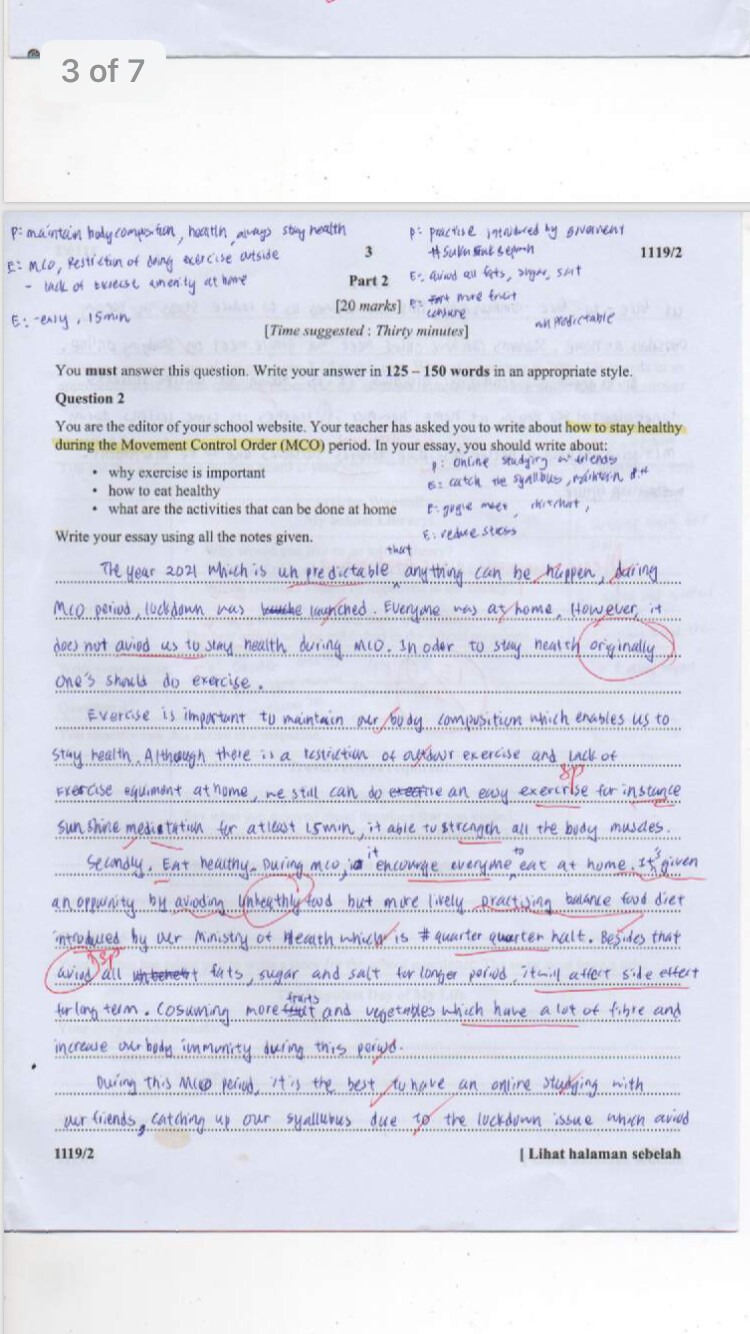 3 of 7
P: maintain body composition, health, always stay health
E: MCO, Restriction of doing exercise outside
- lack of exercise amenity at home
E: - easy, 15min
P: practise introduced by goverment
# suku suku separuh
E: aviod all fats, sugar, salt
E: more fruit
consume
unpredictable
3
1119/2
Part 2
[20 marks]
[Time suggested : Thirty minutes]
You must answer this question. Write your answer in 125 – 150 words in an appropriate style.
Question 2
You are the editor of your school website. Your teacher has asked you to write about how to stay healthy
during the Movement Control Order (MCO) period. In your essay, you should write about:
• why exercise is important
• how to eat healthy
• what are the activities that can be done at home
Write your essay using all the notes given.
P: online studying w friends
E: catch the syallbus, maintain
E: google meet,
E: reduce stress
that
The year 2021 which is un predictable anything can be happen, during
MCO period, lockdown was launched. Everyone was at home. However, it
does not aviod us to stay health during MCO. In oder to stay health originally
one's should do exercise.
Exercise is important to maintain our body composition which enables us to
stay health. Although there is a restriction of outdour exercise and lack of
sp
exercise equiment at home, we still can do an easy exercrise for instance
sun shine mediatation for atleast 15min, it able to strength all the body muscles.
Secondly. Eat healthy. During MCO, it encourge everyone to eat at home. It's given
an oppunity by avioding unheathly food but more likely practising balance food diet
introduced by our Ministry of Health which is # quarter quarter half. Besides that
sp
aviod all fats, sugar and salt for longer period, it will affect side effect
for long term. Cosuming more fruits and vegetables which have a lot of fibre and
increase our body immunity during this period.
During this MCO period, it is the best to have an online studying with
our friends, catching up our syallubus due to the lockdown issue which aviod
1119/2
[ Lihat halaman sebelah